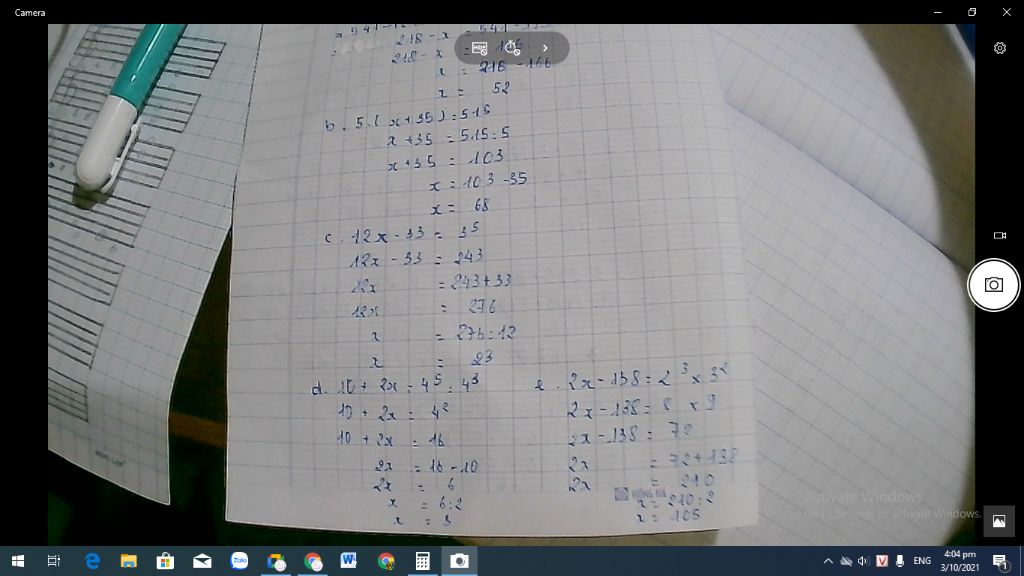 Camera
218 - x
218 - x
x = 218 - 166
x = 52
b. 5.(x+35)=515
x+35 = 515:5
x+35 = 103
x = 103-35
x = 68
c. 12x - 33 = 3⁵
12x - 33 = 243
12x = 243+33
12x = 276
x = 276:12
x = 23
d. 10 + 2x = 4⁵ : 4³
10 + 2x = 4²
10 + 2x = 16
2x = 16 - 10
2x = 6
x = 6:2
x = 3
e. 2x - 138 = 2³ x 3²
2x - 138 = 8 x 9
2x - 138 = 72
2x = 72+138
2x = 210
x = 210:2
x = 105
Activate Windows
Go to Settings to activate Windows.
Zalo
ENG
4:04 pm
3/10/2021